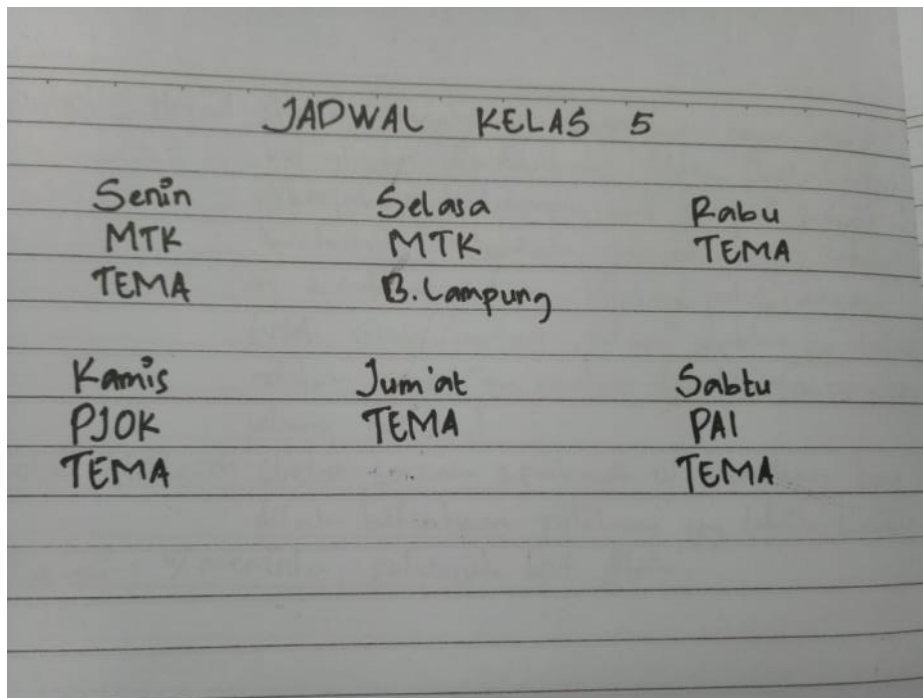 JADWAL KELAS 5
Senin Selasa Rabu
MTK MTK TEMA
TEMA B. Lampung
Kamis Jum'at Sabtu
PJOK TEMA PAI
TEMA TEMA